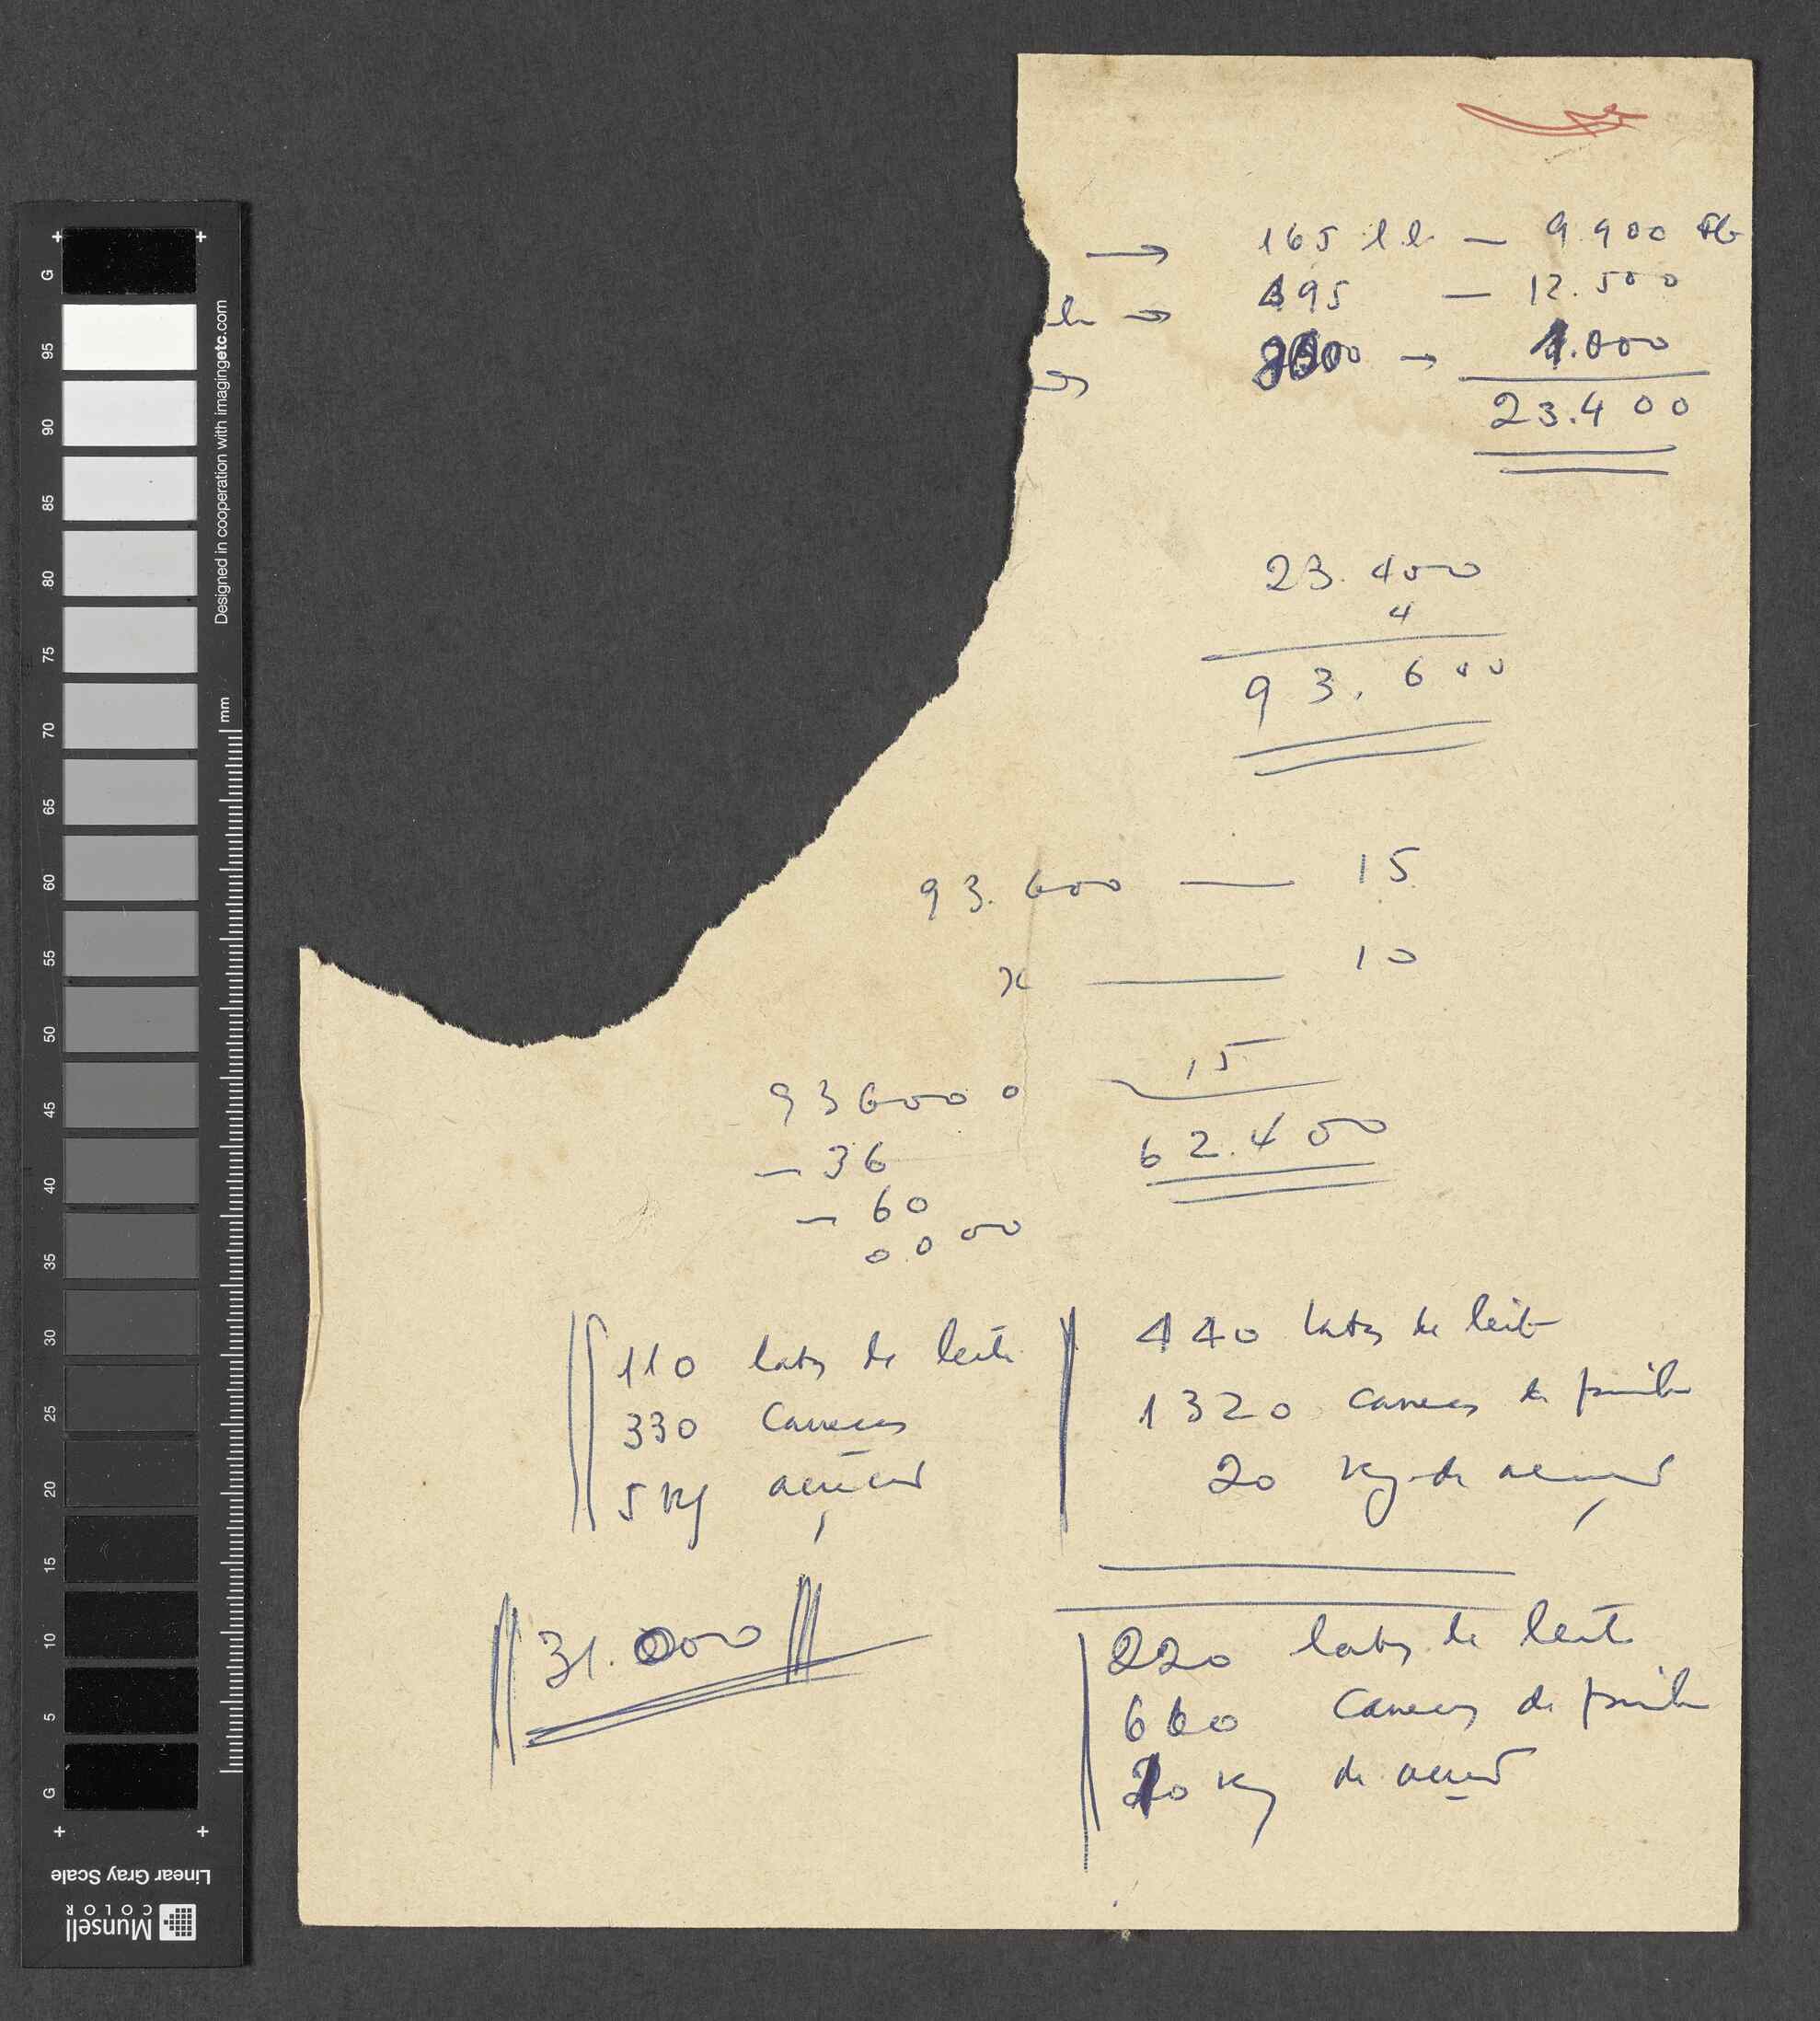 → 165 l.l. — 9.900
→ 495 — 12.500
→ 1.000
23.400
23.400
4
93.600
93.600 — 15
x — 10
936000 15
- 36 62.400
- 60
0000
110 latas de leite
330 canecas
5 Kg açúcar
440 latas de leite
1320 canecas de
20 Kg de açúcar
31.000
220 latas de leite
660 canecas de
10 Kg de açúcar
G
95
90
85
80
75
70
65
60
55
50
45
40
35
30
25
20
15
10
5
G
Designed in cooperation with imagingetc.com
mm
Linear Gray Scale
Munsell
COLOR